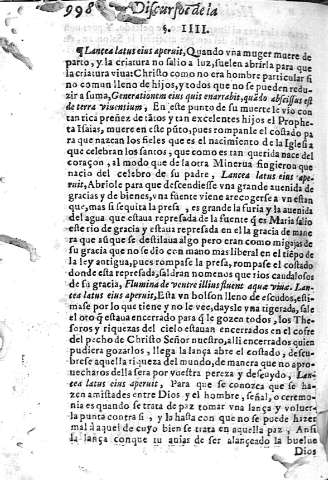 998 Discursos de la
§. IIII.
¶Lancea latus eius aperuit, Quando vna muger muere de
parto, y la criatura no salio a luz, suelen abrirla para que
la criatura viua: Christo como no era hombre particular si
no comun lleno de hijos, y todos que no se pueden redu-
zir a suma, Generationem eius quis enarrabit, quã do abscissus est
de terra viuentium, En este punto de su muerte le vio con
tan rica preñez de tãtos y tan excelentes hijos el Prophe-
ta Isaias, muere en este pũto, pues rompanle el costado pa
ra que nazcan los fieles que es el nacimiento de la Iglesia
que celebran los santos, que como es tan querida nace del
coraçon, al modo que de la otra Minerua fingieron que
nacio del celebro de su padre, Lancea latus eius ape-
ruit, Abriole para que descendiesse vna grande auenida de
gracias y de bienes, vna fuente viene a recogerse a vn estan
que, mas si se quita la presa, es grande la furia y la auenida
del agua que estaua represada de la fuente q̃ es Maria salio
este rio de gracia y estaua represada en el la gracia de mane
ra que aũque se destilaua algo pero eran como migajas de
su gracia que no se dio con mano mas liberal en el tiẽpo de
la ley antigua, pues rompase la presa, rompase el costado
donde esta represada, saldran no menos que rios caudalosos
de su gracia, Flumina de ventre illius fluent aquæ viuæ. Lan-
cea latus eius aperuit, Esta vn bolson lleno de escudos, esti-
mase por lo que tiene y no le vee, dayle vna tigerada, sale
el oro q̃ estaua encerrado para q̃ le gozen todos, los The-
soros y riquezas del cielo estauan encerrados en el cofre
del pecho de Christo Señor nuestro, alli encerrados quien
pudiera gozarlos, llega la lança abre el costado, descu-
brese aquella riqueza del mundo, de manera que no apro-
uecharos della sera por vuestra pereza y descuydo, Lan-
cea latus eius aperuit, Para que se conozca que se ha-
zen amistades entre Dios y el hombre, señal, o ceremo-
nia es quando se trata de paz tomar vna lança y voluer-
la punta contra si, y la hasta con que no se puede hazer
mal à aquel de cuyo bien se trata en aquella paz, Ansi
la lança conque tu auias de ser alanceado la buelue
Dios